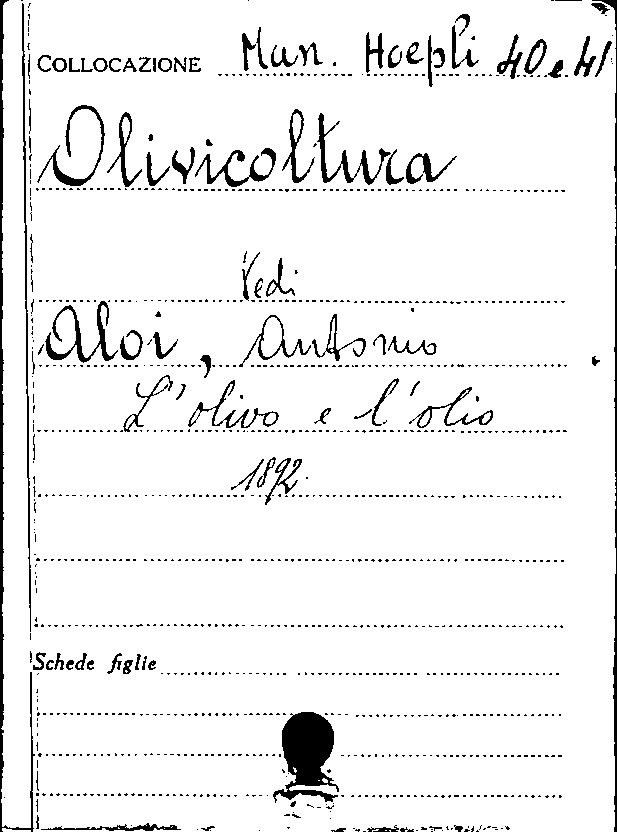 COLLOCAZIONE Man. Hoepli 40 e 41
Olivicoltura
Vedi
Aloi, Antonio
L'olivo e l'olio
1892.
Schede figlie